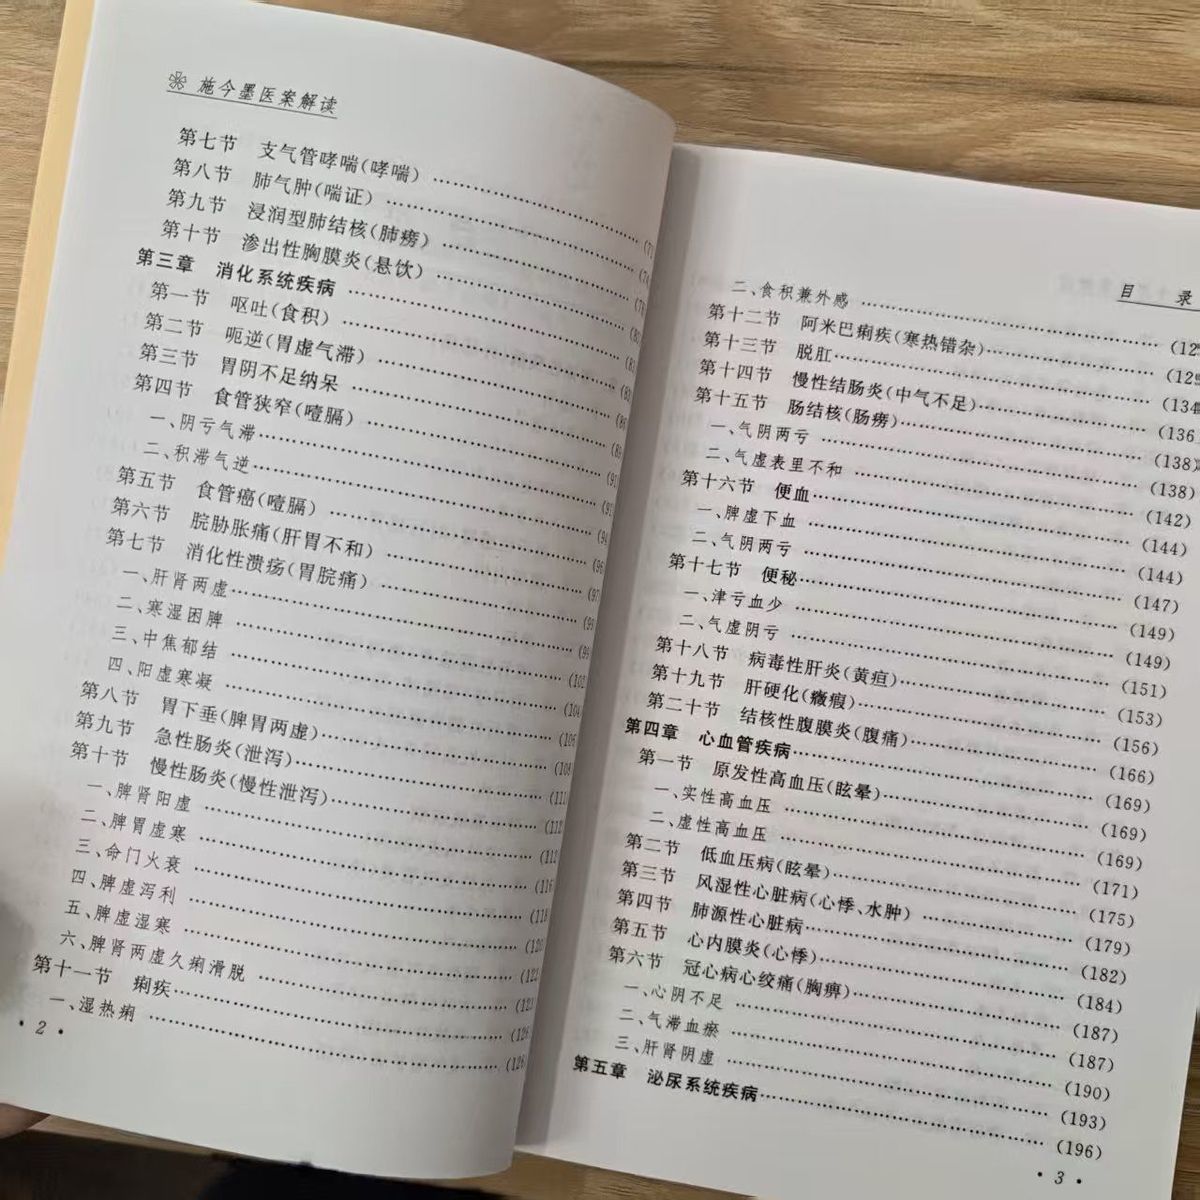 施今墨医案解读
第七节 支气管哮喘(哮喘)……(71
第八节 肺气肿(喘证)……(74
第九节 浸润型肺结核(肺痨)……(78
第十节 渗出性胸膜炎(悬饮)……
第三章 消化系统疾病……(83
第一节 呕吐(食积)……(83
第二节 呃逆(胃虚气滞)……(86
第三节 胃阴不足纳呆……(89
第四节 食管狭窄(噎膈)……(91
一、阴亏气滞……(91
二、积滞气逆……(94
第五节 食管癌(噎膈)……(96
第六节 脘胁胀痛(肝胃不和)……(97
第七节 消化性溃疡(胃脘痛)……(99
一、肝肾两虚……(99
二、寒湿困脾……(102
三、中焦郁结……(104
四、阳虚寒凝……(106
第八节 胃下垂(脾胃两虚)……(108
第九节 急性肠炎(泄泻)……(111
第十节 慢性肠炎(慢性泄泻)……(112
一、脾肾阳虚……(112
二、脾胃虚寒……(116
三、命门火衰……(118
四、脾虚泻利……(120
五、脾虚湿寒……(122
六、脾肾两虚久痢滑脱……(123
第十一节 痢疾……(126
一、湿热痢……(126
· 2 ·
目 录
二、食积兼外感……(129
第十二节 阿米巴痢疾(寒热错杂)……(129
第十三节 脱肛……(134
第十四节 慢性结肠炎(中气不足)……(136)
第十五节 肠结核(肠痨)……(138)
一、气阴两亏……(138)
二、气虚表里不和……(142)
第十六节 便血……(144)
一、脾虚下血……(144)
二、气阴两亏……(147)
第十七节 便秘……(149)
一、津亏血少……(149)
二、气虚阴亏……(151)
第十八节 病毒性肝炎(黄疸)……(153)
第十九节 肝硬化(癥瘕)……(156)
第二十节 结核性腹膜炎(腹痛)……(166)
第四章 心血管疾病……(169)
第一节 原发性高血压(眩晕)……(169)
一、实性高血压……(169)
二、虚性高血压……(171)
第二节 低血压病(眩晕)……(175)
第三节 风湿性心脏病(心悸、水肿)……(179)
第四节 肺源性心脏病……(182)
第五节 心内膜炎(心悸)……(184)
第六节 冠心病心绞痛(胸痹)……(187)
一、心阴不足……(187)
二、气滞血瘀……(190)
三、肝肾阴虚……(193)
第五章 泌尿系统疾病……(196)
· 3 ·